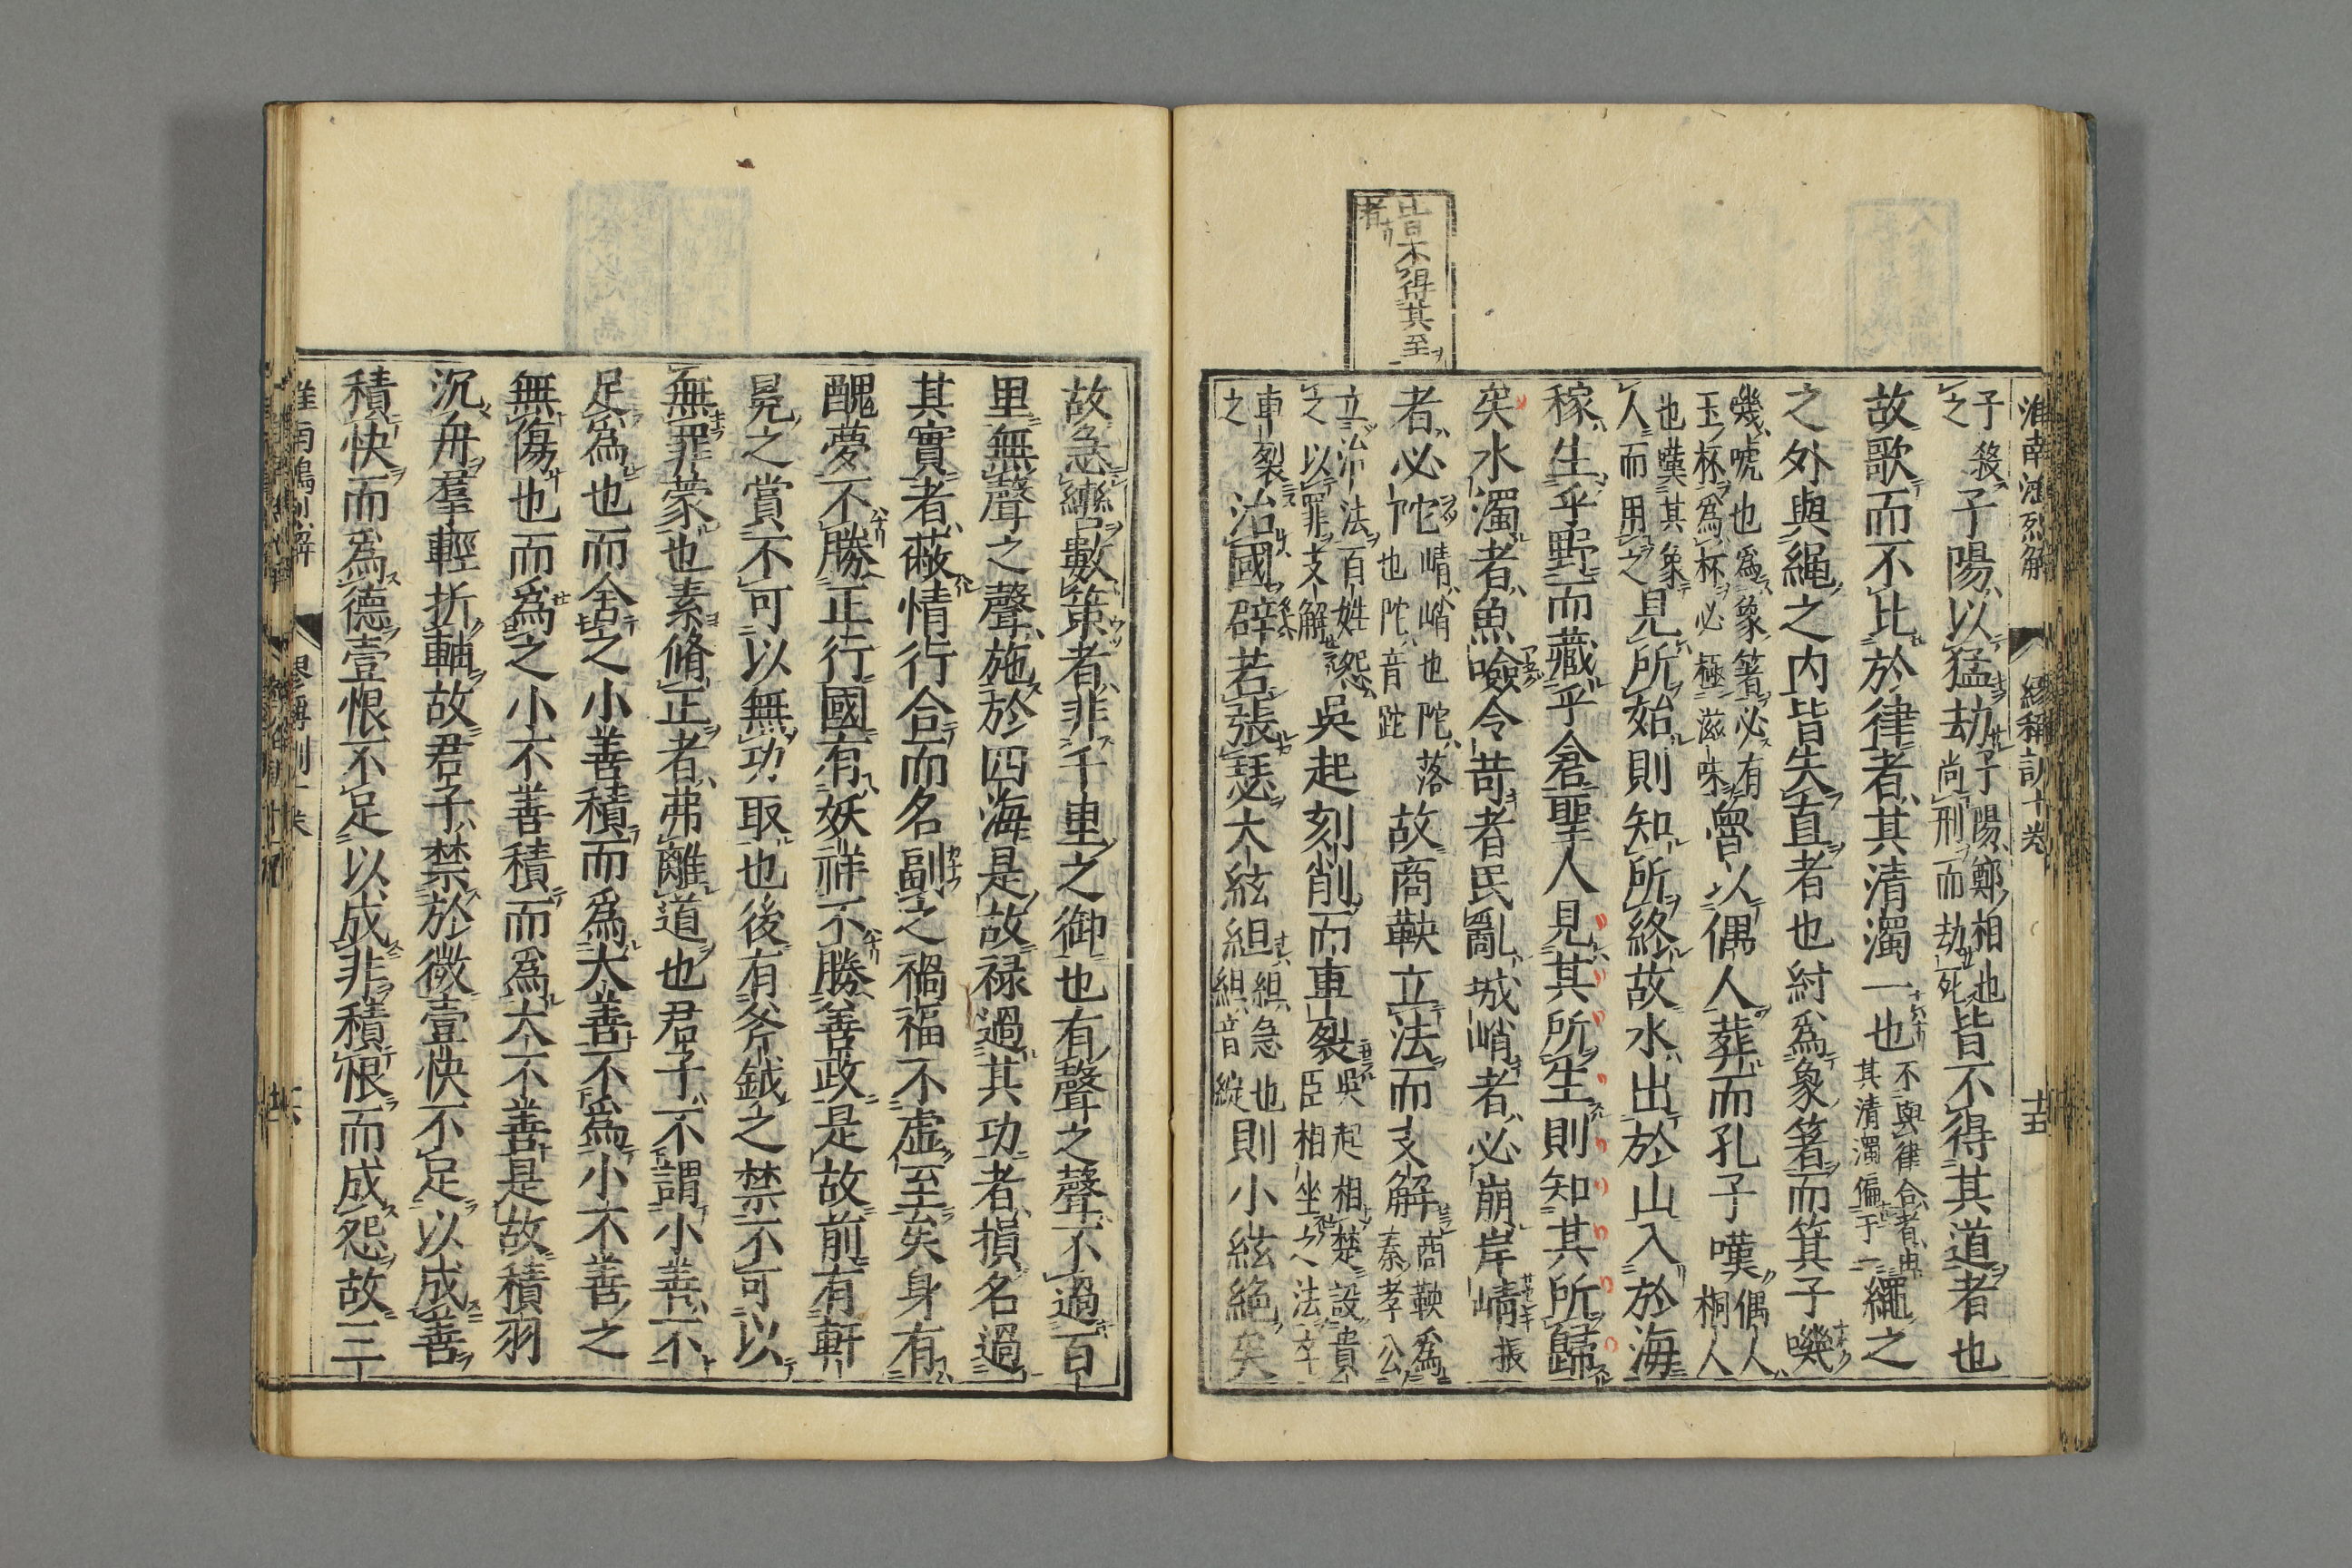 淮南鴻烈解
繆稱訓十卷
十五
皆不得其至
者
子殺
之
子陽以猛劫
子陽鄭相也
尚刑而劫死
皆不得其道者也
故歌而不比於律者其清濁一也
不與律合者由
其清濁偏于一
繩之
之外與繩之内皆失直者也紂爲象箸而箕子嘰
嘰唬也爲象箸必有
玉杯爲杯必極滋味
魯以偶人葬而孔子嘆
偶人
桐人
也嘆其象
人而用之
見所始則知所終故水出於山入於海
稼生乎野而藏乎倉聖人見其所生則知其所歸
矣水濁者魚噞令苛者民亂城峭者必崩岸崝
者必陀
崝峭也陀落
也陀音跎
故商鞅立法而支解
商鞅爲
秦孝公
立治法百姓怨
之以罪支解
吳起刻削而車裂
吳起相楚設貴
臣相坐之法卒
車裂
之
治國辟若張瑟大絃絙
絙急也
絙音縱
則小絃絶矣
故急轡數策者非千車之御也有聲之聲不過百
里無聲之聲施於四海是故禄過其功者損名過
其實者蔽情行合而名副之禍福不虚至矣身有
醜夢不勝正行國有妖祥不勝善政是故前有軒
冕之賞不可以無功取也後有斧鉞之禁不可以
無罪蒙也素脩正者弗離道也君子不謂小善不
足爲也而舍之小善積而爲大善不爲小不善之
無傷也而爲之小不善積而爲大不善是故積羽
沉舟羣輕折輔故君子禁於微壹快不足以成善
積快而爲德壹恨不足以成非積恨而成怨故三